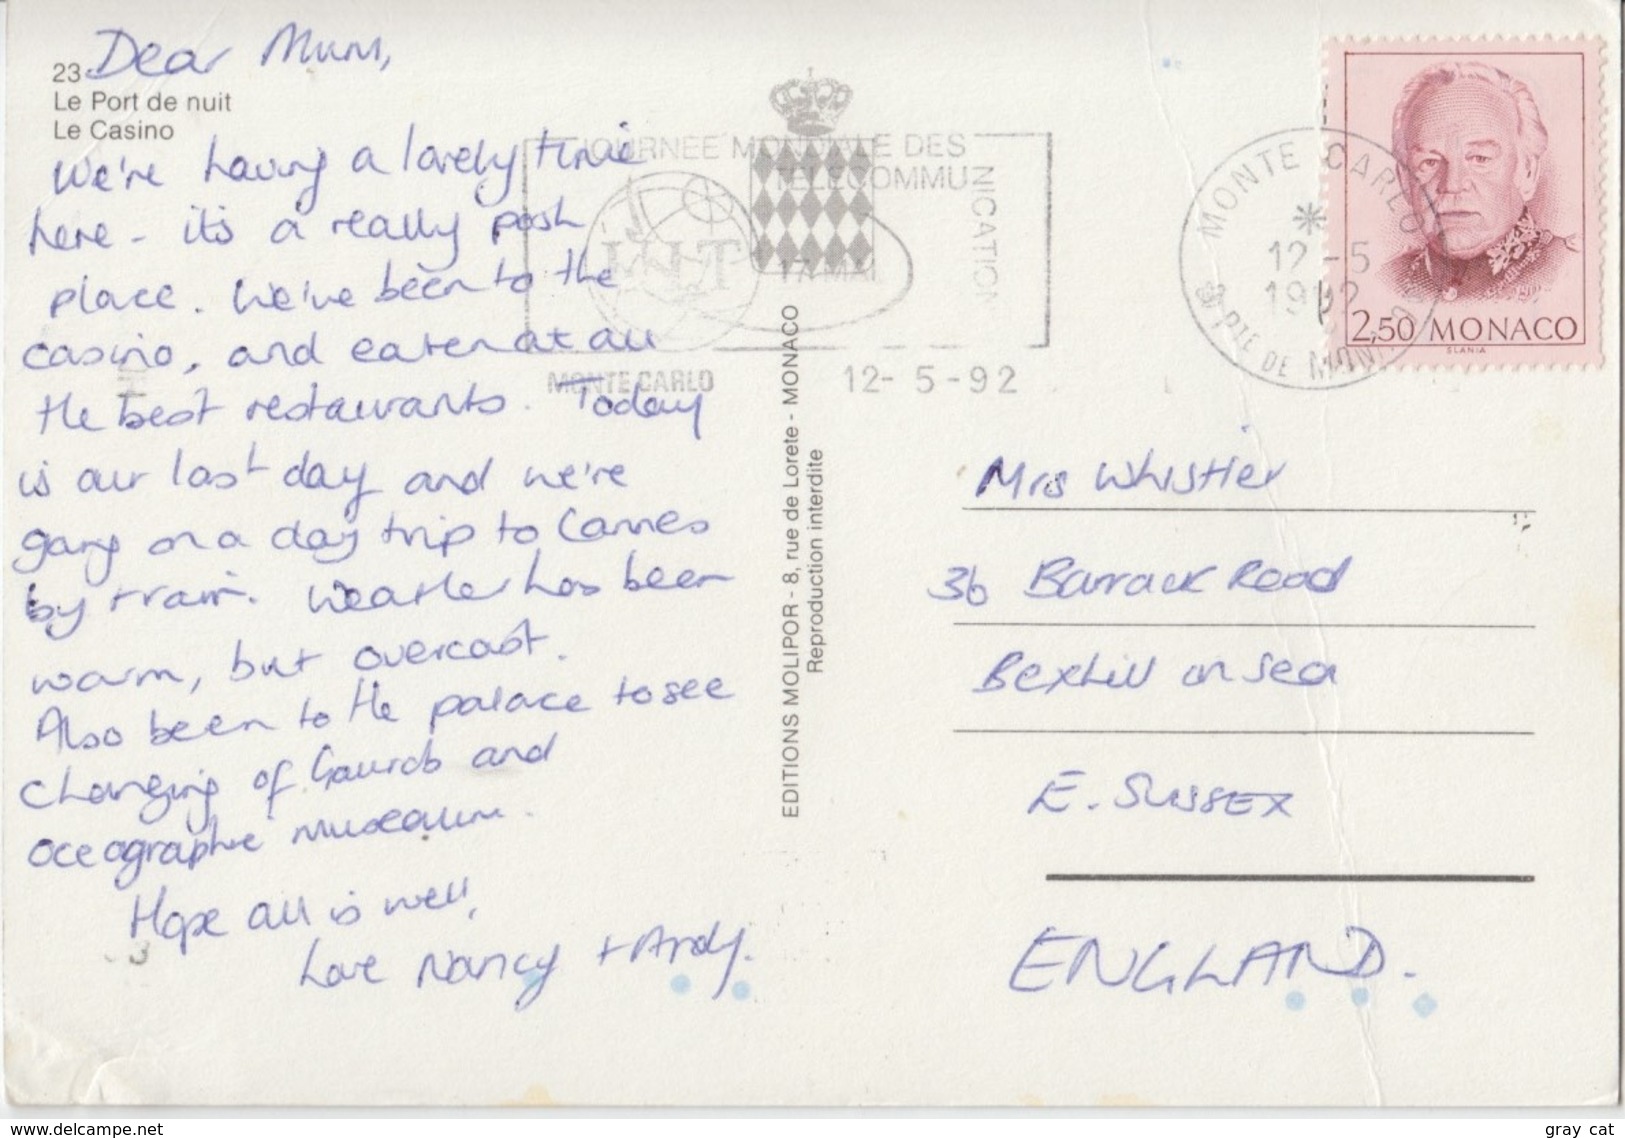 23 Dear Mum,
Le Port de nuit
Le Casino
We're having a lovely time
here - it's a really posh
place. We've been to the
casino, and eaten at all
the best restaurants. Today
is our last day and we're
going on a day trip to Cannes
by train. Weather has been
warm, but overcast.
Also been to the palace to see
changing of Gaurds and
oceagraphic museaum.
Hope all is well,
Love Nancy + Andy.
EDITIONS MOLIPOR - 8, rue de Lorete - MONACO
Reproduction interdite
JOURNEE MONDIALE DES
TELECOMMUNICATION
17 MAI
MONTE CARLO 12-5-92
MONTE CARLO
12-5
1992
PTE DE MONACO
2,50 MONACO
SLANIA
Mrs Whistler
36 Barrack Road
Bexhill on Sea
E. SUSSEX
ENGLAND.
www.delcampe.net
gray cat